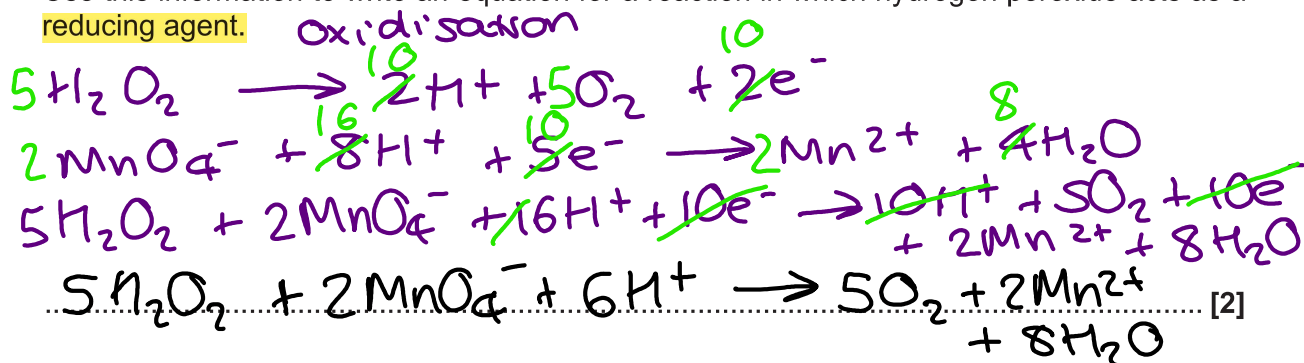 reducing agent. Oxidisation
10 10
5H₂O₂ → 2H⁺ + 5O₂ + 2e⁻
16 10 8
2MnO₄⁻ + 8H⁺ + 5e⁻ → 2Mn²⁺ + 4H₂O
5H₂O₂ + 2MnO₄⁻ + 16H⁺ + 10e⁻ → 10H⁺ + 5O₂ + 10e
+ 2Mn²⁺ + 8H₂O
5H₂O₂ + 2MnO₄⁻ + 6H⁺ → 5O₂ + 2Mn²⁺ [2]
+ 8H₂O